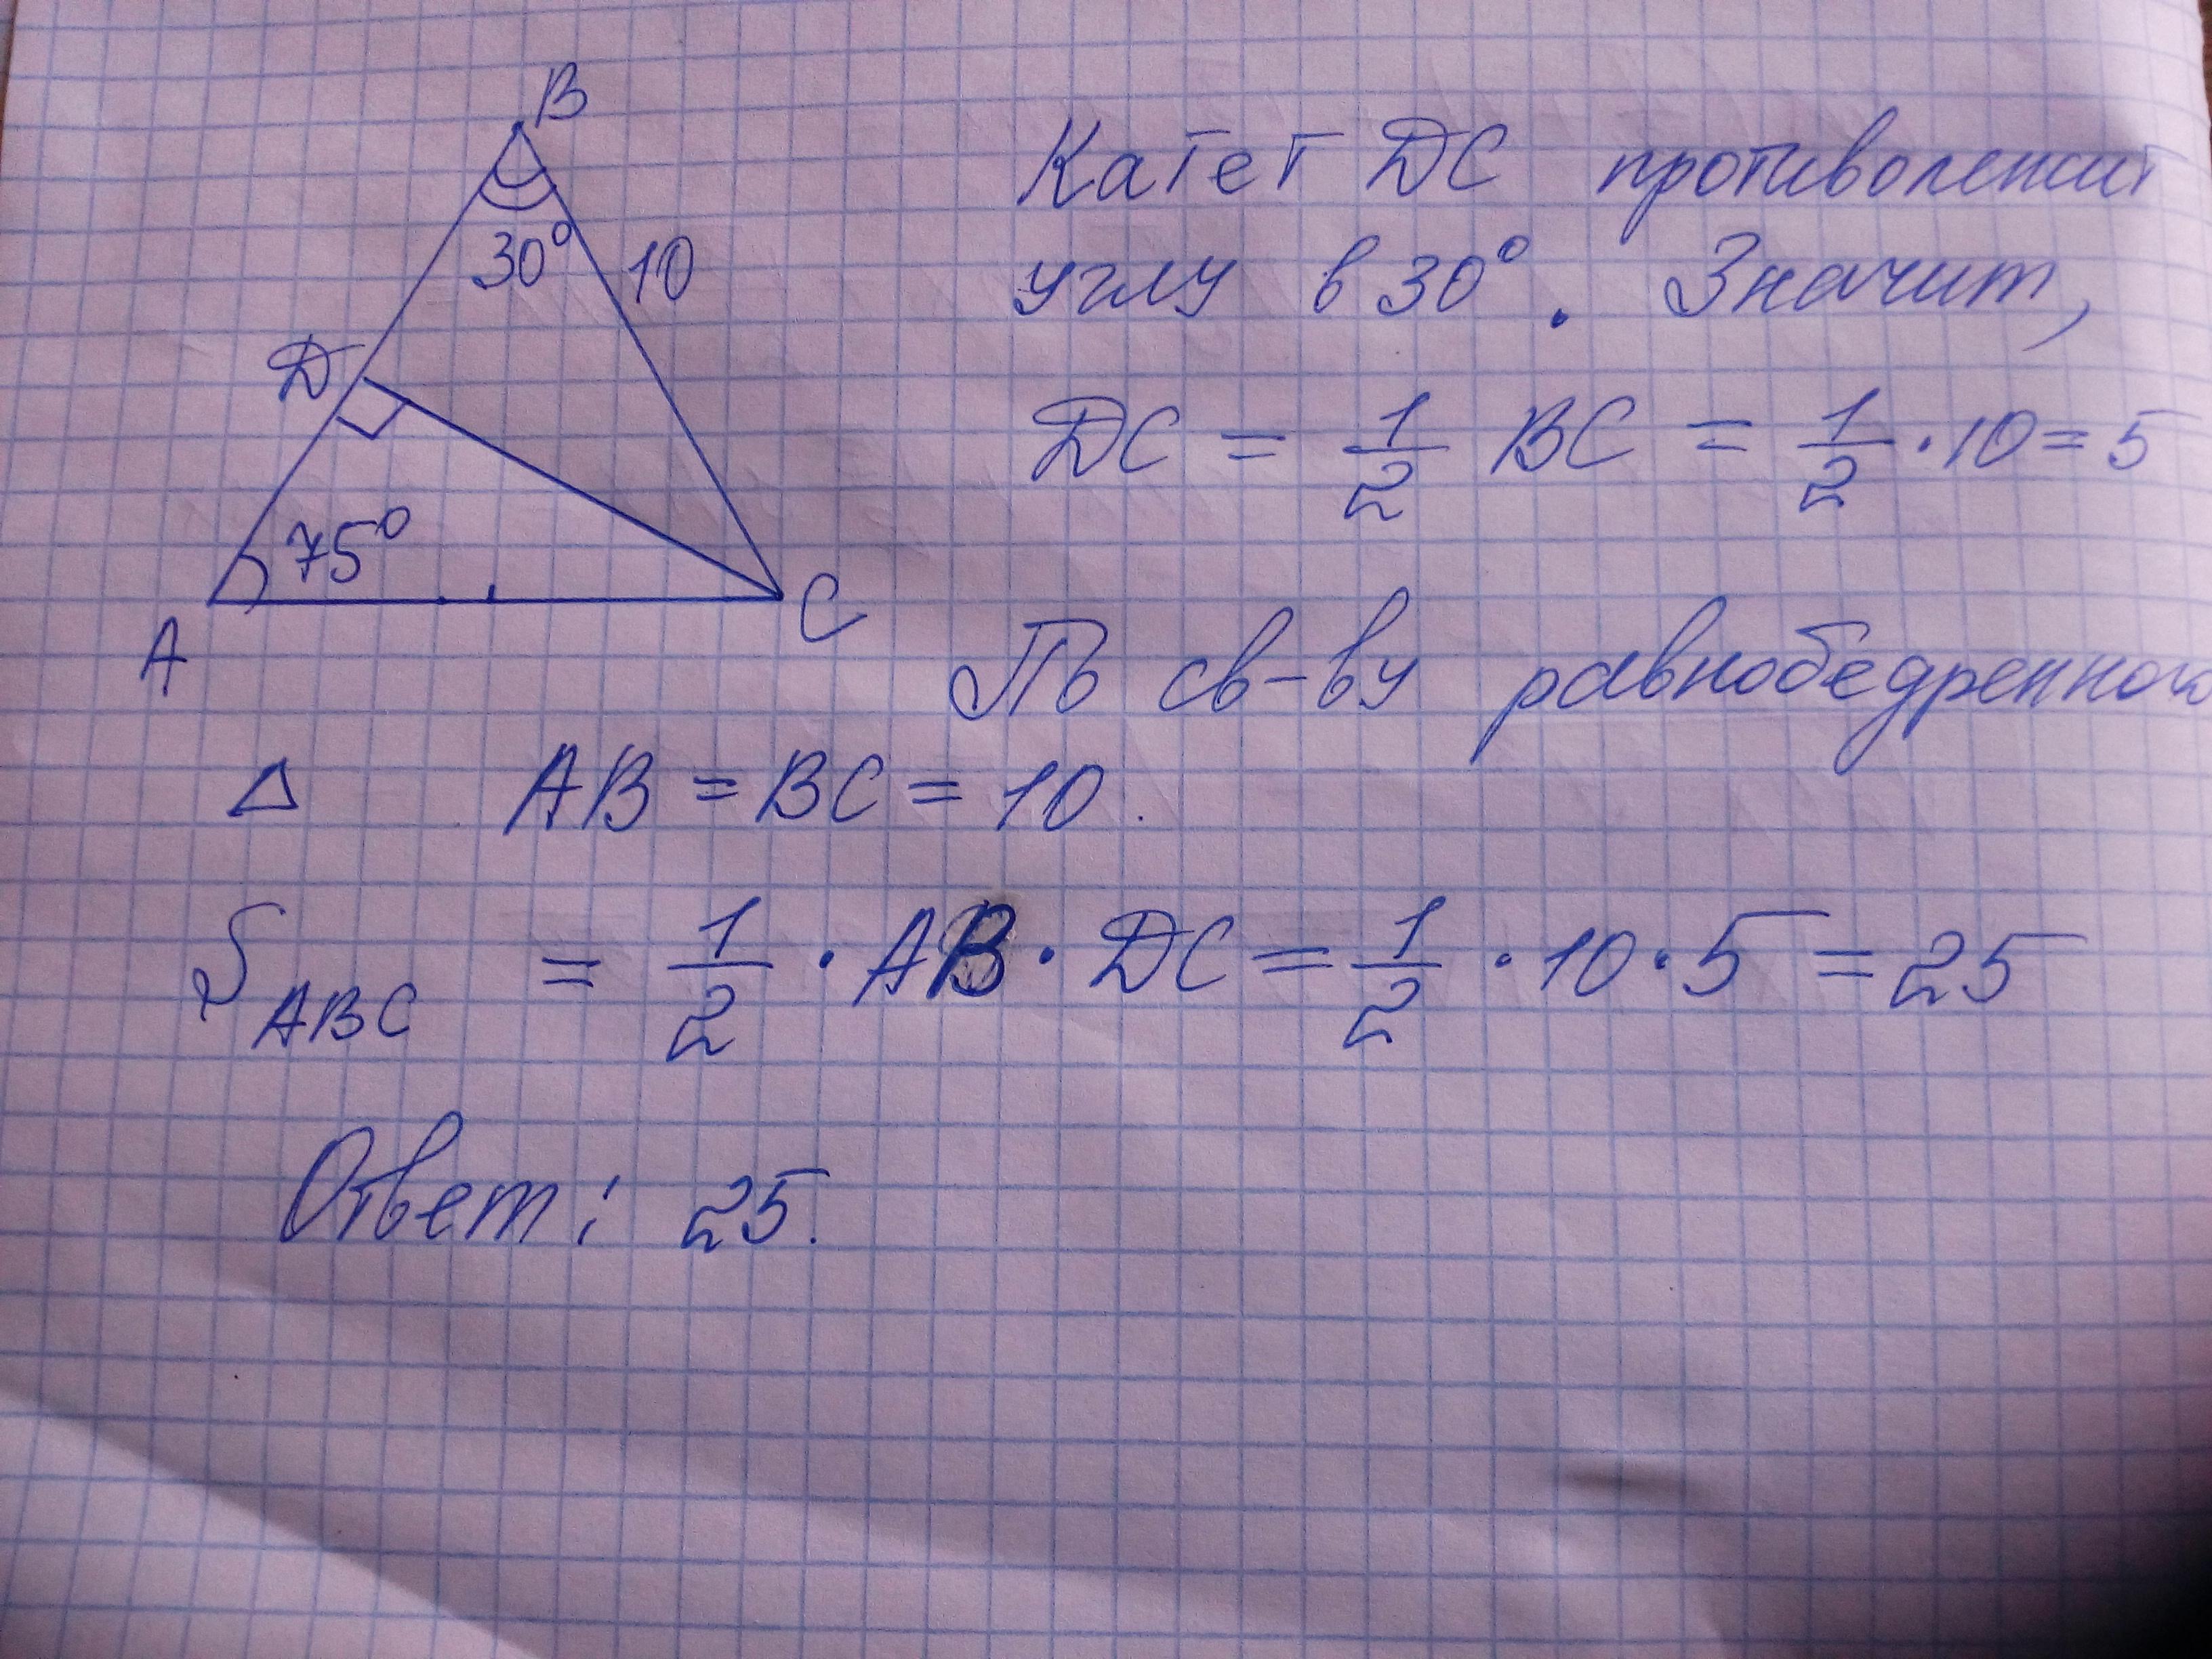 B
30° 10
D
75°
A C
Катет DC противолежит
углу в 30°. Значит,
DC = 1/2 BC = 1/2 · 10 = 5
По св-ву равнобедренного
△ AB = BC = 10.
S ABC = 1/2 · AB · DC = 1/2 · 10 · 5 = 25
Ответ: 25.